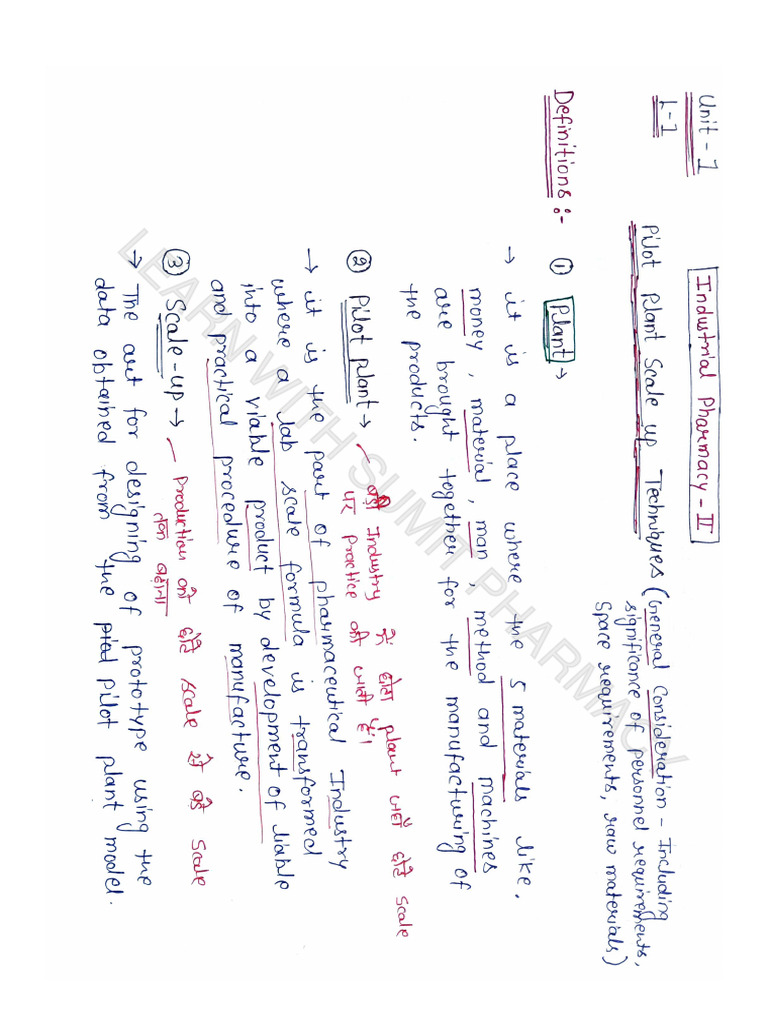 Industrial Pharmacy - II
Unit - 1
L-1
Pilot Plant Scale up Techniques (General Consideration - Including
significance of personnel requirements,
Space requirements, raw materials)
Definitions :-
① Plant →
→ it is a place where the 5 materials like,
money, material, man, method and machines
are brought together for the manufacturing of
the products.
② Pilot plant → बड़ी Industry के छोटा plant जहाँ छोटे scale
पर practice की जाती है।
→ it is the part of pharmaceutical Industry
where a lab scale formula is transformed
into a viable product by development of liable
and practical procedure of manufacture.
③ Scale-up → Production को छोटे scale से बड़े scale
तक बढ़ाना
→ The art for designing of prototype using the
data obtained from the Pilot plant model.
LEARN WITH SUMIT PHARMACY